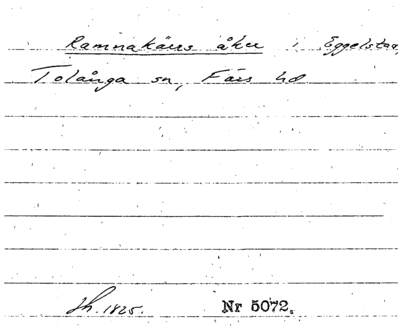 Ramnakärrs åker i Eggelstad,
Tolånga sn, Färs hd
Sh. 1825. Nr 5072.